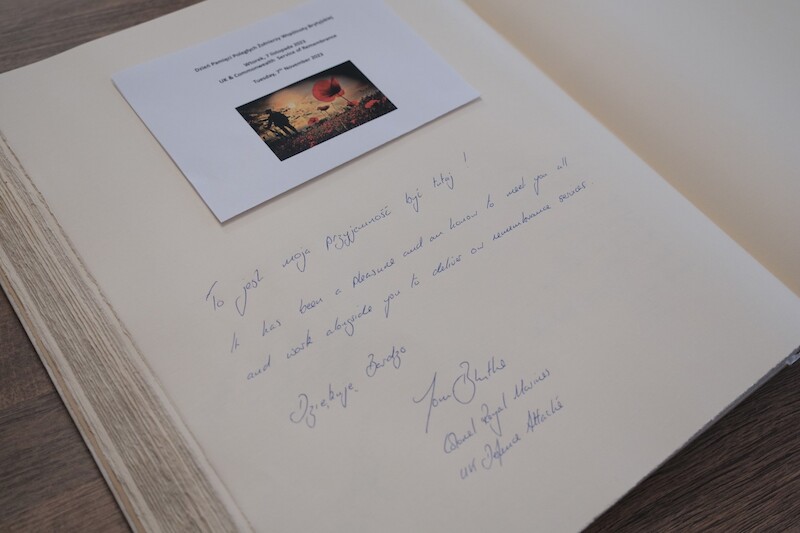 Dzień Pamięci Poległych Żołnierzy Wspólnoty Brytyjskiej
Wtorek, 7 listopada 2023
UK & Commonwealth Service of Remembrance
Tuesday, 7th November 2023
To jest moja Przyjemność być tutaj!
It has been a pleasure and an honor to meet you all
and work alongside you to deliver our remembrance services.
Dziękuję Bardzo
Tom Blythe
Colonel Royal Marines
UK Defence Attaché